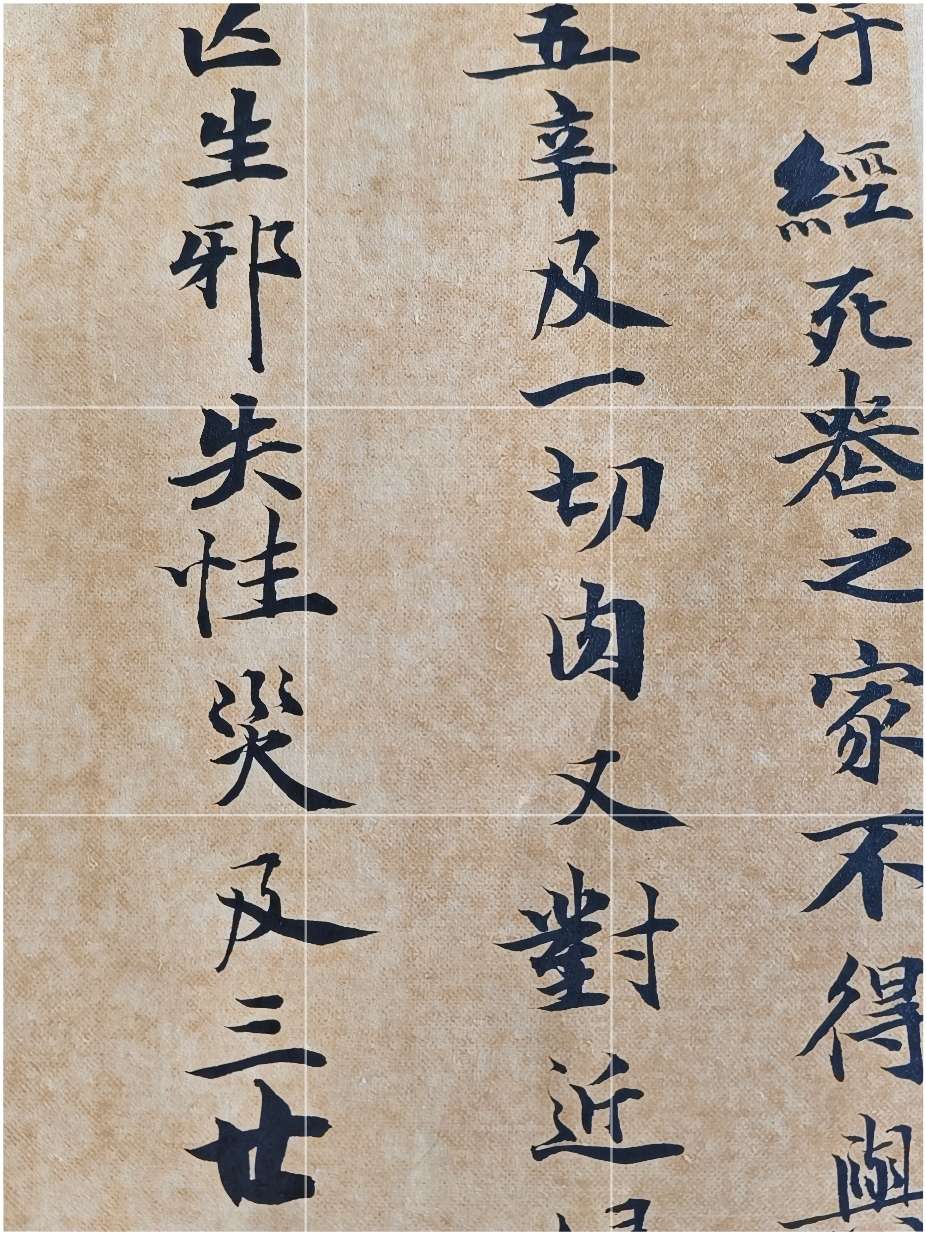 汙經死喪之家不得與
五辛及一切肉又對近
亾生邪失性災及三廿